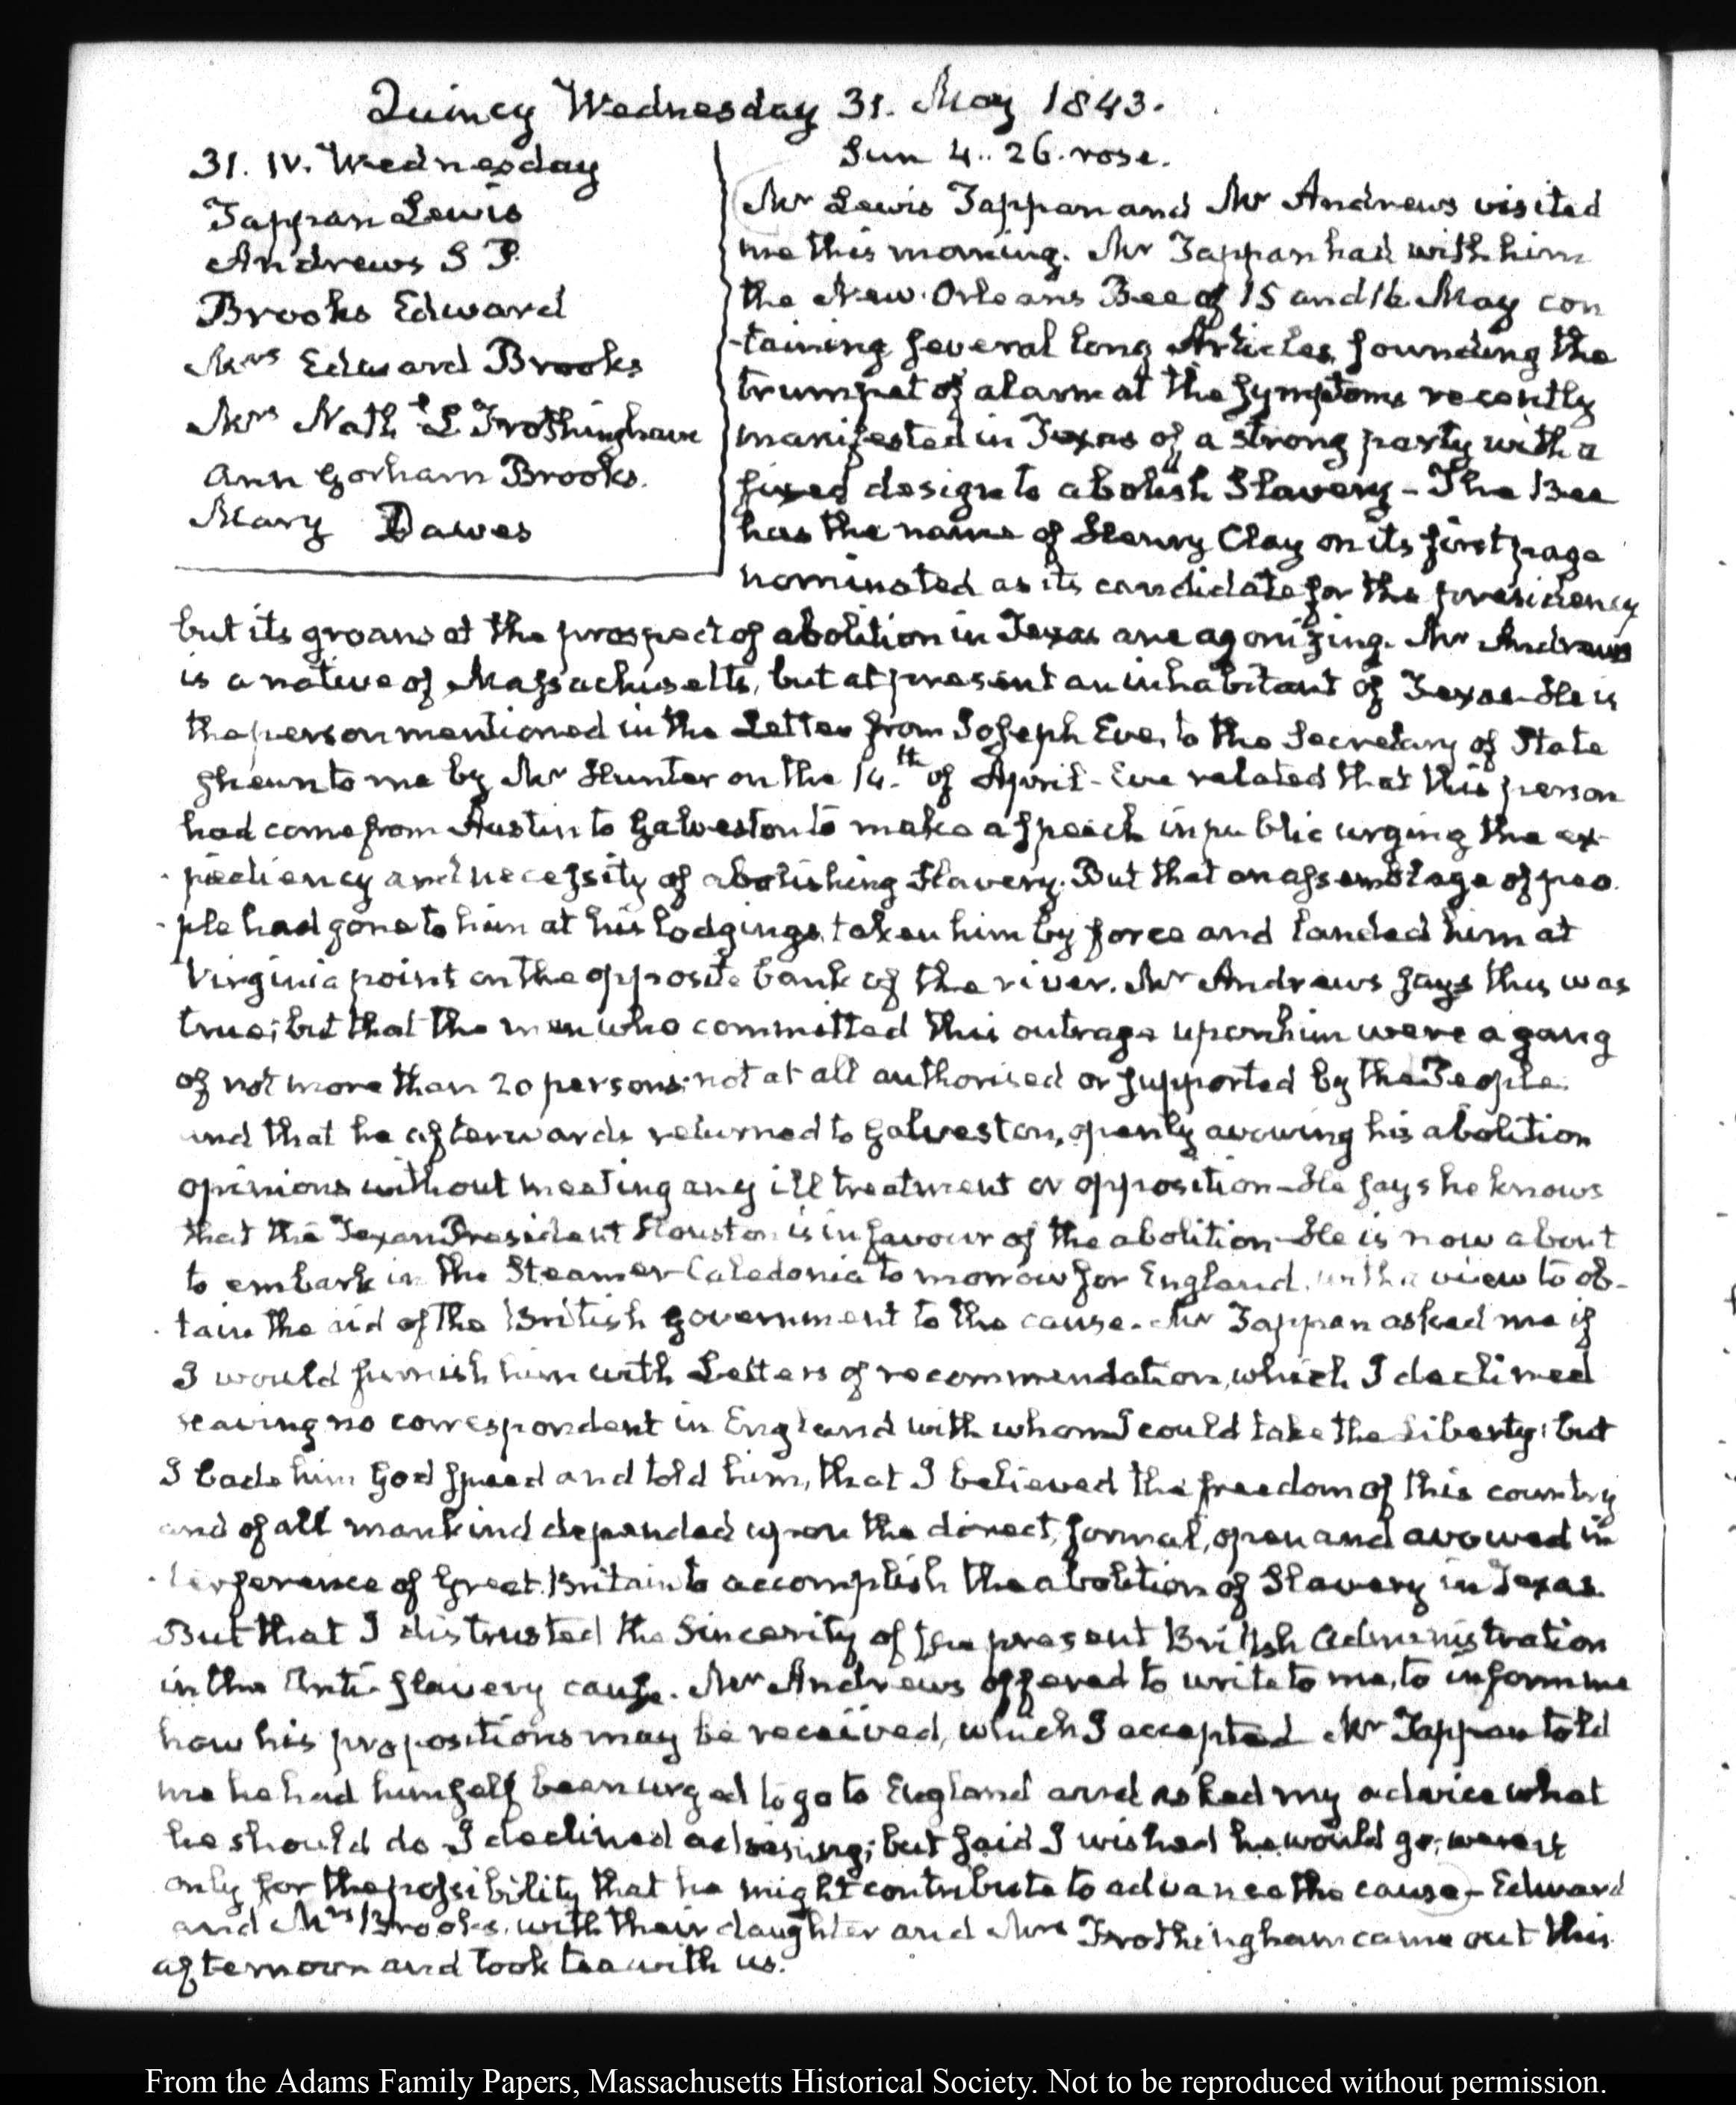 Quincy Wednesday 31. May 1843.
31. IV. Wednesday
Tappan Lewis
Andrews S P.
Brooks Edward
Mrs Edward Brooks
Mrs Nathl L Frothingham
Ann Gorham Brooks.
Mary Dawes
Sun 4..26. rose.
Mr Lewis Tappan and Mr Andrews visited
me this morning. Mr Tappan had with him
the New Orleans Bee of 15 and 16 May con
-taining several long Articles sounding the
trumpet of alarm at the symptoms recently
manifested in Texas of a strong party with a
fixed design to abolish Slavery - The Bee
has the name of Henry Clay on its first page
nominated as its candidate for the presidency
but its groans at the prospect of abolition in Texas are agonizing. Mr Andrews
is a native of Massachusetts, but at present an inhabitant of Texas - He is
the person mentioned in the Letter from Joseph Eve, to the Secretary of State
shewn to me by Mr Hunter on the 14.th of April - Eve related that this person
had come from Austin to Galveston to make a speech in public urging the ex-
-pediency and necessity of abolishing Slavery. But that an assemblage of peo.
-ple had gone to him at his lodgings, taken him by force and landed him at
Virginia point on the opposite bank of the river. Mr Andrews says this was
true; but that the men who committed this outrage upon him were a gang
of not more than 20 persons; not at all authorised or supported by the People.
and that he afterwards returned to Galveston, openly avowing his abolition
opinions without meeting any ill treatment or opposition - He says he knows
that the Texan President Houston is in favour of the abolition - He is now about
to embark in the Steamer Caledonia to morrow for England, with a view to ob-
-tain the aid of the British government to the cause. Mr Tappan asked me if
I would furnish him with Letters of recommendation, which I declined
having no correspondent in England with whom I could take the liberty: but
I bade him God speed and told him, that I believed the freedom of this country
and of all mankind depended upon the direct, formal, open and avowed in
-terference of Great Britain to accomplish the abolition of Slavery in Texas
But that I distrusted the Sincerity of the present British Administration
in the Anti-Slavery cause. Mr Andrews offered to write to me, to inform me
how his propositions may be received, which I accepted Mr Tappan told
me he had himself been urged to go to England and asked my advice what
he should do I declined advising; but said I wished he would go, were it
only for the possibility that he might contribute to advance the cause - Edward
and Mrs Brooks, with their daughter and Mrs Frothingham came out this
afternoon and took tea with us.
From the Adams Family Papers, Massachusetts Historical Society. Not to be reproduced without permission.